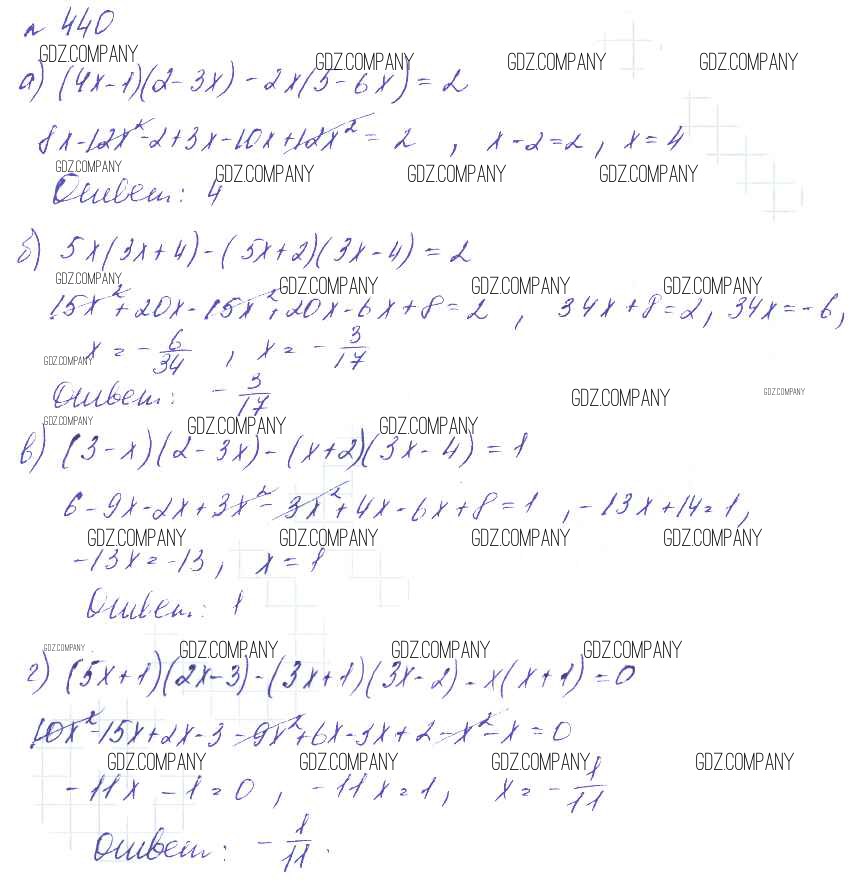 № 440
GDZ.COMPANY GDZ.COMPANY GDZ.COMPANY GDZ.COMPANY
а) (4x-1)(2-3x) - 2x(5-6x) = 2
8x-12x²-2+3x-10x+12x² = 2 , x-2=2, x=4
GDZ.COMPANY GDZ.COMPANY GDZ.COMPANY GDZ.COMPANY
Ответ: 4
б) 5x(3x+4)-(5x+2)(3x-4) = 2
GDZ.COMPANY GDZ.COMPANY GDZ.COMPANY GDZ.COMPANY
15x²+20x-15x²+20x-6x+8=2 , 34x+8=2, 34x=-6,
GDZ.COMPANY x = -6/34 , x = -3/17
Ответ: -3/17 GDZ.COMPANY GDZ.COMPANY
GDZ.COMPANY GDZ.COMPANY GDZ.COMPANY
в) (3-x)(2-3x)-(x+2)(3x-4) = 1
6-9x-2x+3x²-3x²+4x-6x+8=1 , -13x+14=1,
GDZ.COMPANY GDZ.COMPANY GDZ.COMPANY GDZ.COMPANY
-13x=-13, x=1
Ответ: 1
GDZ.COMPANY GDZ.COMPANY GDZ.COMPANY GDZ.COMPANY
г) (5x+1)(2x-3)-(3x+1)(3x-2)-x(x+1)=0
10x²-15x+2x-3-9x²+6x-3x+2-x²-x=0
GDZ.COMPANY GDZ.COMPANY GDZ.COMPANY GDZ.COMPANY
-11x -1=0 , -11x=1, x=-1/11
Ответ: -1/11.